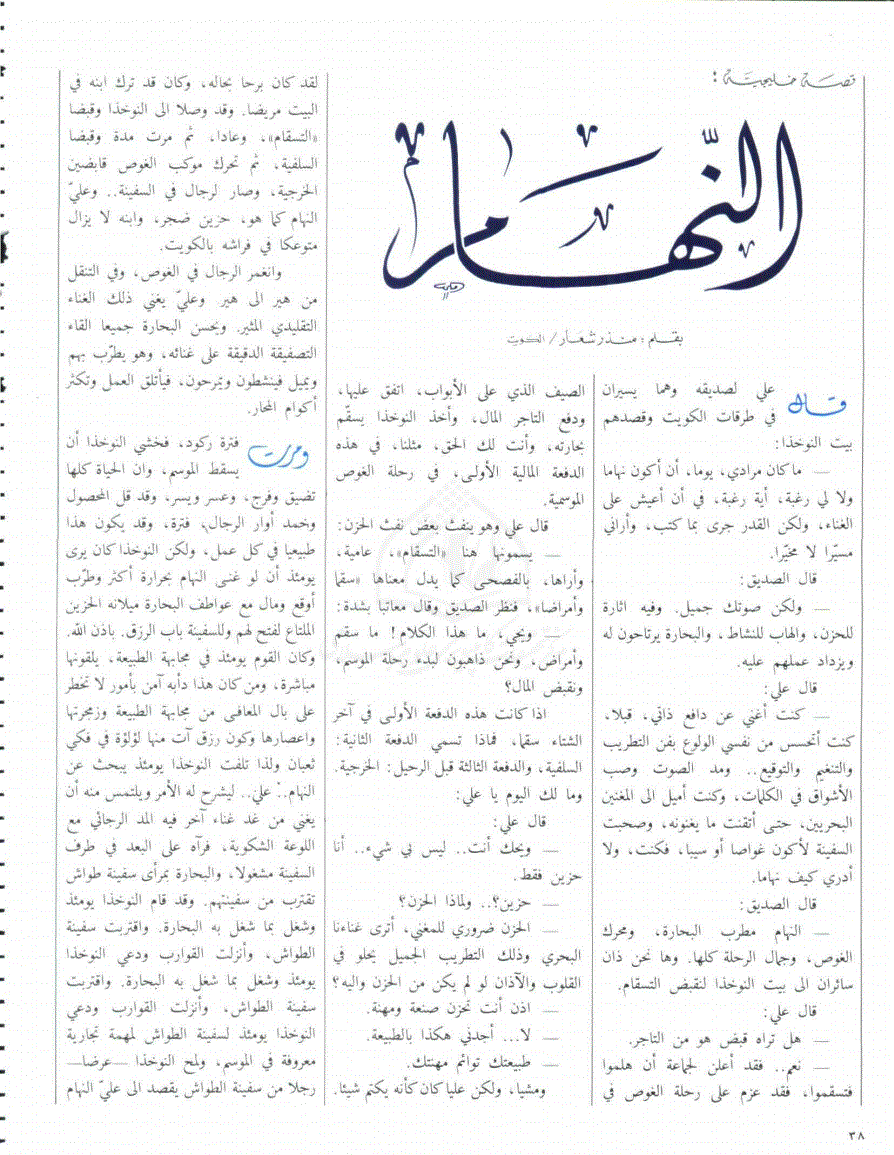 قصة خليجية :
النهّام
بقلم : منذر شعار / الكويت
قال علي لصديقه وهما يسيران
في طرقات الكويت وقصدهم
بيت النوخذا:
— ما كان مرادي، يوما، أن أكون نهاما
ولا لي رغبة، أية رغبة، في أن أعيش على
الغناء، ولكن القدر جرى بما كتب، وأراني
مسيّرا لا مخيّرا.
قال الصديق:
— ولكن صوتك جميل. وفيه اثارة
للحزن، والهاب للنشاط، والبحارة يرتاحون له
ويزداد عملهم عليه.
قال علي:
— كنت أغني عن دافع ذاتي، قبلا،
كنت أتحسس من نفسي الولوع بفن التطريب
والتنغيم والتوقيع.. ومد الصوت وصب
الأشواق في الكلمات، وكنت أميل الى المغنين
البحريين، حتى أتقنت ما يغنونه، وصحبت
السفينة لأكون غواصا أو سيبا، فكنت، ولا
أدري كيف نهاما.
قال الصديق:
— النهام مطرب البحارة، ومحرك
الغوص، وجمال الرحلة كلها. وها نحن ذان
سائران الى بيت النوخذا لنقبض التسقام.
قال علي:
— هل تراه قبض هو من التاجر.
— نعم.. فقد أعلن لجماعة أن هلموا
فتسقموا، فقد عزم على رحلة الغوص في
الصيف الذي على الأبواب، اتفق عليها،
ودفع التاجر المال، وأخذ النوخذا يسقّم
بحارته، وأنت لك الحق، مثلنا، في هذه
الدفعة المالية الأولى، في رحلة الغوص
الموسمية.
قال علي وهو ينفث بعض نفث الحزن:
— يسمونها هنا «التسقام»، عامية،
وأراها، بالفصحى كما يدل معناها «سقما
وأمراضا»، فنظر الصديق وقال معاتبا بشدة:
— ويحي، ما هذا الكلام! ما سقم
وأمراض، ونحن ذاهبون لبدء رحلة الموسم،
ونقبض المال؟
اذا كانت هذه الدفعة الأولى في آخر
الشتاء سقما، فماذا تسمي الدفعة الثانية:
السلفية، والدفعة الثالثة قبل الرحيل: الخرجية.
وما لك اليوم يا علي:
قال علي:
— ويحك أنت.. ليس بي شيء.. أنا
حزين فقط.
— حزين؟.. ولماذا الحزن؟
— الحزن ضروري للمغني، أترى غناءنا
البحري وذلك التطريب الجميل يحلو في
القلوب والآذان لو لم يكن من الحزن واليه؟
— اذن أنت تحزن صنعة ومهنة.
— لا... أجدني هكذا بالطبيعة.
— طبيعتك توائم مهنتك.
ومشيا، ولكن عليا كان كأنه يكتم شيئا.
لقد كان برحا بحاله، وكان قد ترك ابنه في
البيت مريضا. وقد وصلا الى النوخذا وقبضا
«التسقام»، وعادا، ثم مرت مدة وقبضا
السلفية، ثم تحرك موكب الغوص قابضين
الخرجية، وصار لرجال في السفينة.. وعليّ
النهام كما هو، حزين ضجر، وابنه لا يزال
متوعكا في فراشه بالكويت.
وانغمر الرجال في الغوص، وفي التنقل
من هير الى هير وعليّ يغني ذلك الغناء
التقليدي المثير. ويحسن البحارة جميعا القاء
التصفيقة الدقيقة على غنائه، وهو يطرّب بهم
ويميل فينشطون ويمرحون، فيأتلق العمل وتكثر
أكوام المحار.
ومرت فترة ركود، فخشي النوخذا أن
يسقط الموسم، وان الحياة كلها
تضيق وفرج، وعسر ويسر، وقد قل المحصول
وخمد أوار الرجال، فترة، وقد يكون هذا
طبيعيا في كل عمل، ولكن النوخذا كان يرى
يومئذ أن لو غنى النهام بحرارة أكثر وطرّب
أوقع ومال مع عواطف البحارة ميلانه الحزين
الملتاع لفتح لهم وللسفينة باب الرزق. باذن الله.
وكان القوم يومئذ في مجابهة الطبيعة، يلقونها
مباشرة، ومن كان هذا دأبه آمن بأمور لا تخطر
على بال المعافى من مجابهة الطبيعة وزمجرتها
واعصارها وكون رزق آت منها لؤلؤة في فكي
ثعبان ولذا تلفت النوخذا يومئذ يبحث عن
النهام.. علي.. ليشرح له الأمر ويلتمس منه أن
يغني من غد غناء آخر فيه المد الرجائي مع
اللوعة الشكوية، فرآه على البعد في طرف
السفينة مشغولا، والبحارة بمرأى سفينة طواش
تقترب من سفينتهم. وقد قام النوخذا يومئذ
وشغل بما شغل به البحارة. واقتربت سفينة
الطواش، وأنزلت القوارب ودعي النوخذا
يومئذ وشغل بما شغل به البحارة. واقتربت
سفينة الطواش، وأنزلت القوارب ودعي
النوخذا يومئذ لسفينة الطواش لمهمة تجارية
معروفة في الموسم، ولمح النوخذا —عرضا—
رجلا من سفينة الطواش يقصد الى عليّ النهام
٣٨